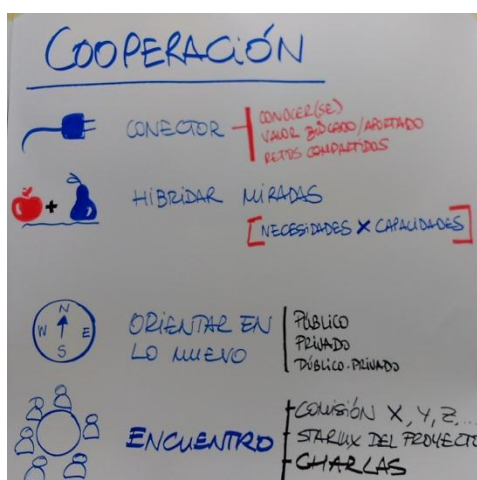 COOPERACIÓN
CONECTOR
CONOCER(SE)
VALOR BUSCADO/APORTADO
RETOS COMPARTIDOS
+
HIBRIDAR MIRADAS
[NECESIDADES X CAPACIDADES]
N
W E
S
ORIENTAR EN
LO NUEVO
PÚBLICO
PRIVADO
PÚBLICO-PRIVADO
ENCUENTRO
COMISIÓN X, Y, Z,...
DEL PROYECTO
CHARLAS